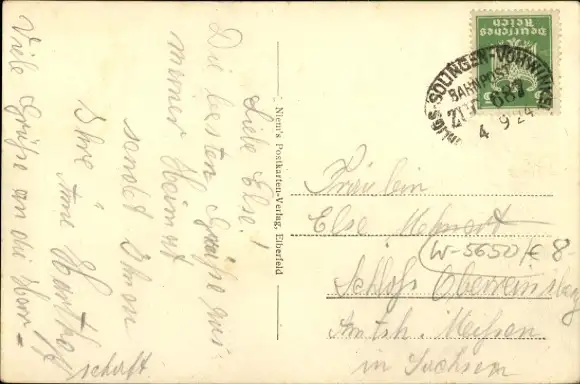 Liebe Else!
Die besten Grüße aus
meiner Heimat
sendet Ihnen
Ihre Anni
Viele Grüße an die Herr-
schaft
Niem's Postkarten-Verlag, Elberfeld
Deutsches
Reich
OHLIGS-SOLINGEN-VOHWINKEL
BAHNPOST
ZUG 687
4 9 24
Fräulein
Else Mehnert
W-5650/€ 8-
Schloß Oberreinsberg
Amtsh. Meißen
in Sachsen